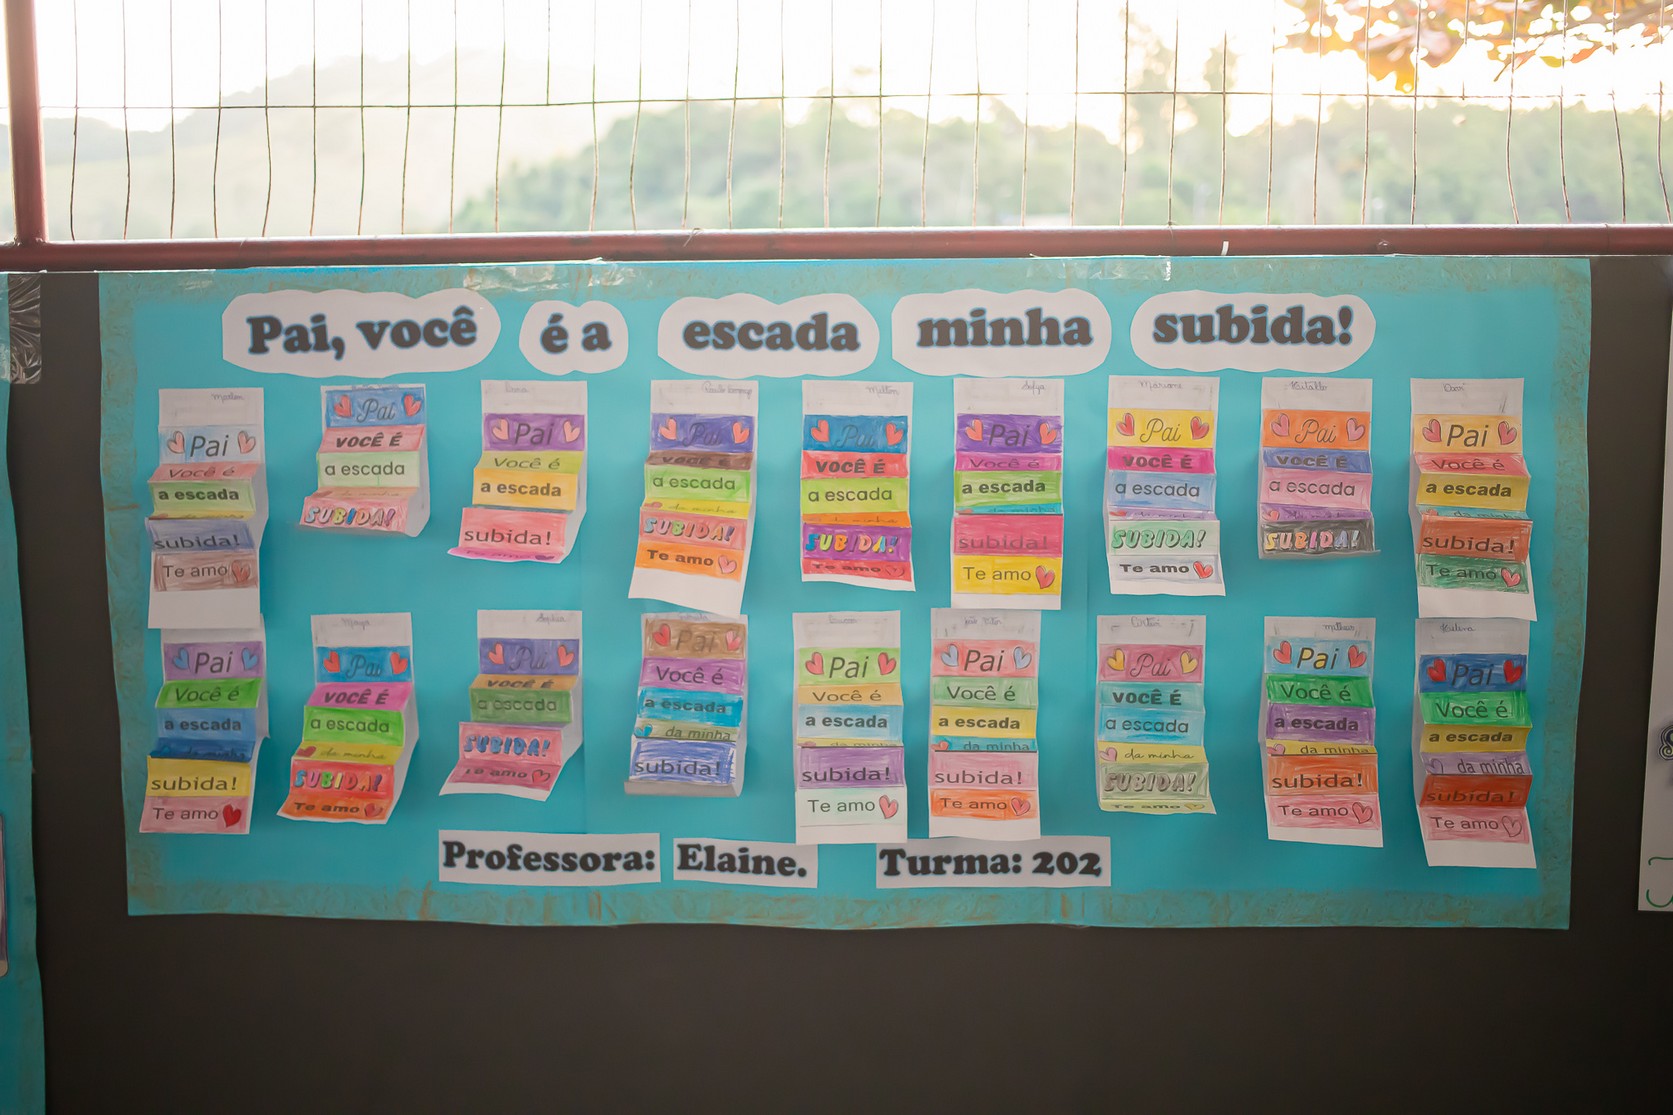 Pai, você é a escada minha subida!
Marlon
Pai
você é
a escada
subida!
Te amo
Pai
VOCÊ É
a escada
da minha
SUBIDA!
Pai
Você é
a escada
subida!
Pai
VOCÊ É
a escada
da minha
SUBIDA!
Te amo
Milton
Pai
VOCÊ É
a escada
da minha
SUBIDA!
Te amo
Sofya
Pai
você é
a escada
da minha
subida!
Te amo
Mariana
Pai
VOCÊ É
a escada
da minha
SUBIDA!
Te amo
Pai
VOCÊ É
a escada
da minha
SUBIDA!
Davi
Pai
Você é
a escada
da minha
subida!
Te amo
Pai
Você é
a escada
da minha
subida!
Te amo
Pai
VOCÊ É
a escada
da minha
SUBIDA!
Te amo
Pai
VOCÊ É
a escada
SUBIDA!
Te amo
Pai
Você é
a escada
da minha
subida!
Pai
Você é
a escada
da minha
subida!
Te amo
João Vitor
Pai
Você é
a escada
da minha
subida!
Te amo
Pai
VOCÊ É
a escada
da minha
SUBIDA!
Te amo
Matheus
Pai
Você é
a escada
da minha
subida!
Te amo
Helena
Pai
Você é
a escada
da minha
subida!
Te amo
Professora: Elaine. Turma: 202